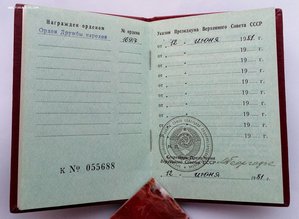 Награжден орденом
№ ордена
Орден Дружбы народов
К № 055688
Указом Президиума Верховного Совета СССР
от „12 июня 1981 г.
от „ 19 г.
от „ 19 г.
от „ 19 г.
от „ 19 г.
от „ 19 г.
от „ 19 г.
от „ 19 г.
Секретарь Президиума
Верховного Совета СССР
„12 июня 1981 г.